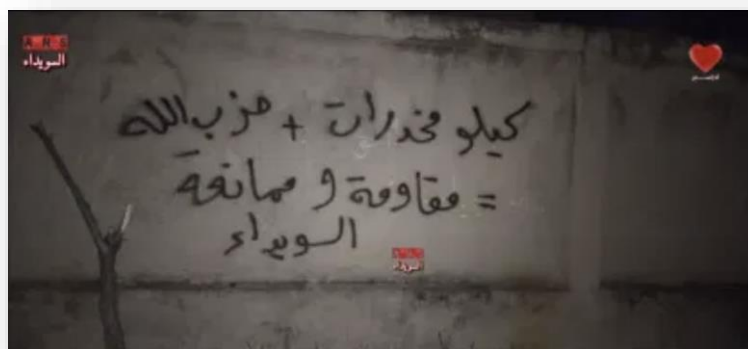 ANS
السويداء
كيلو مخدرات + حزب الله
= مقاومة و ممانعة
السويداء
السويداء